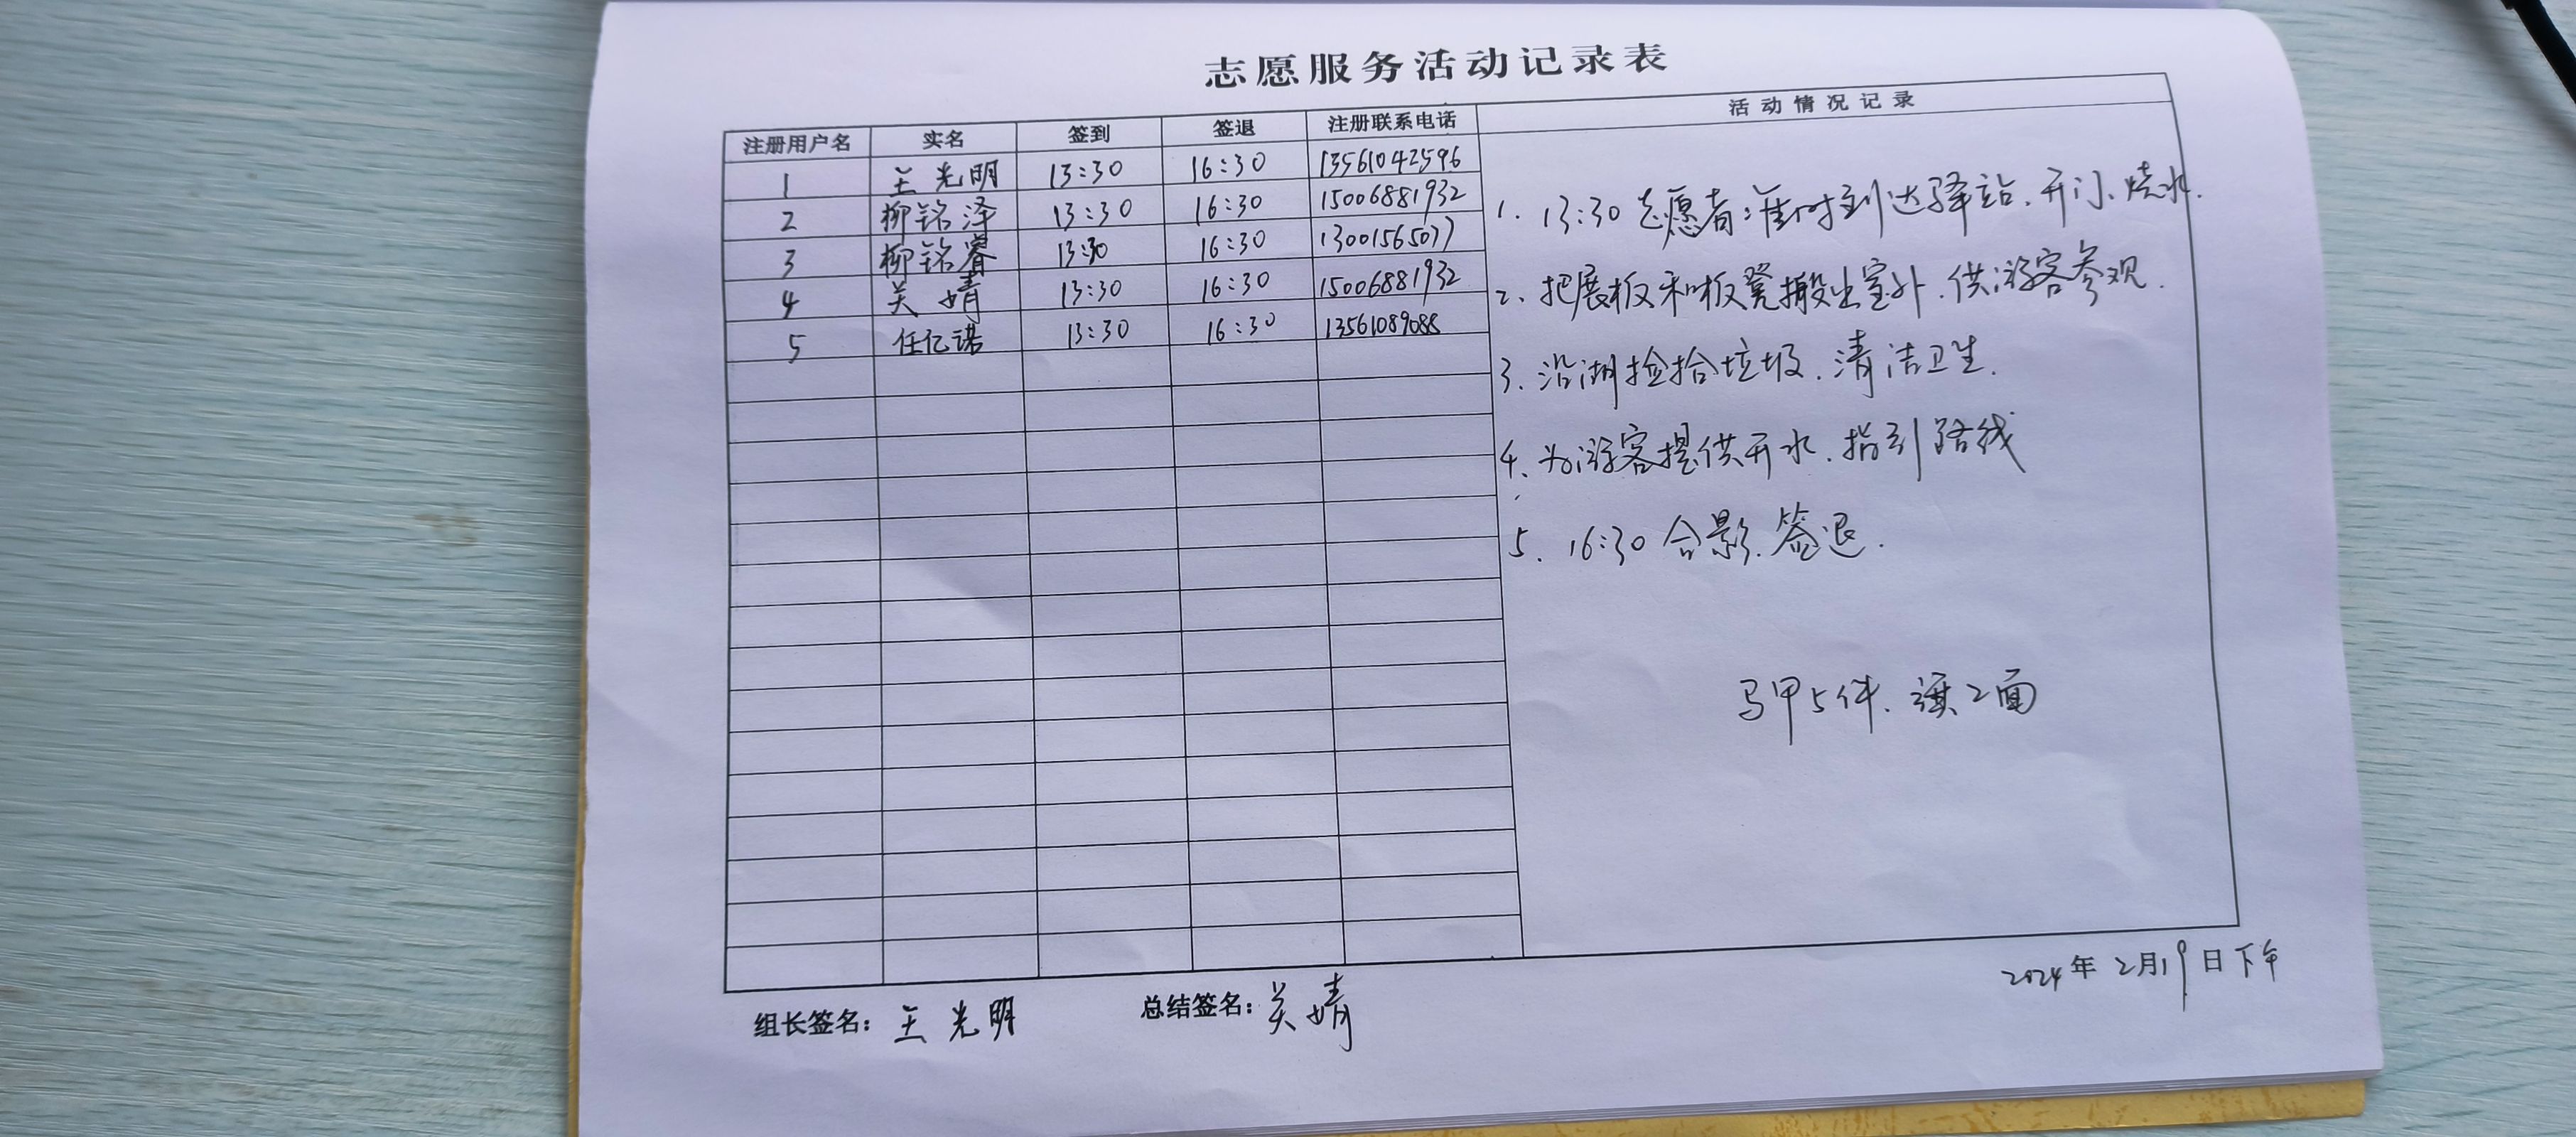 志愿服务活动记录表
注册用户名 实名 签到 签退 注册联系电话 活动情况记录
1 王光明 13:30 16:30 13561042596
2 柳铭泽 13:30 16:30 15006881932
3 柳铭睿 13:30 16:30 13001565077
4 关婧 13:30 16:30 15006881932
5 任亿诺 13:30 16:30 13561089088
1. 13:30 志愿者准时到达驿站.开门、烧水.
2、把展板和板凳搬出室外.供游客参观.
3.沿湖捡拾垃圾.清洁卫生.
4、为游客提供开水.指引路线
5. 16:30 合影.签退.
马甲5件.旗2面
2024年2月19日下午
组长签名：王光明 总结签名：关婧